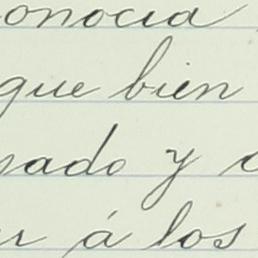 onocia
que bien
sado y c
er á los